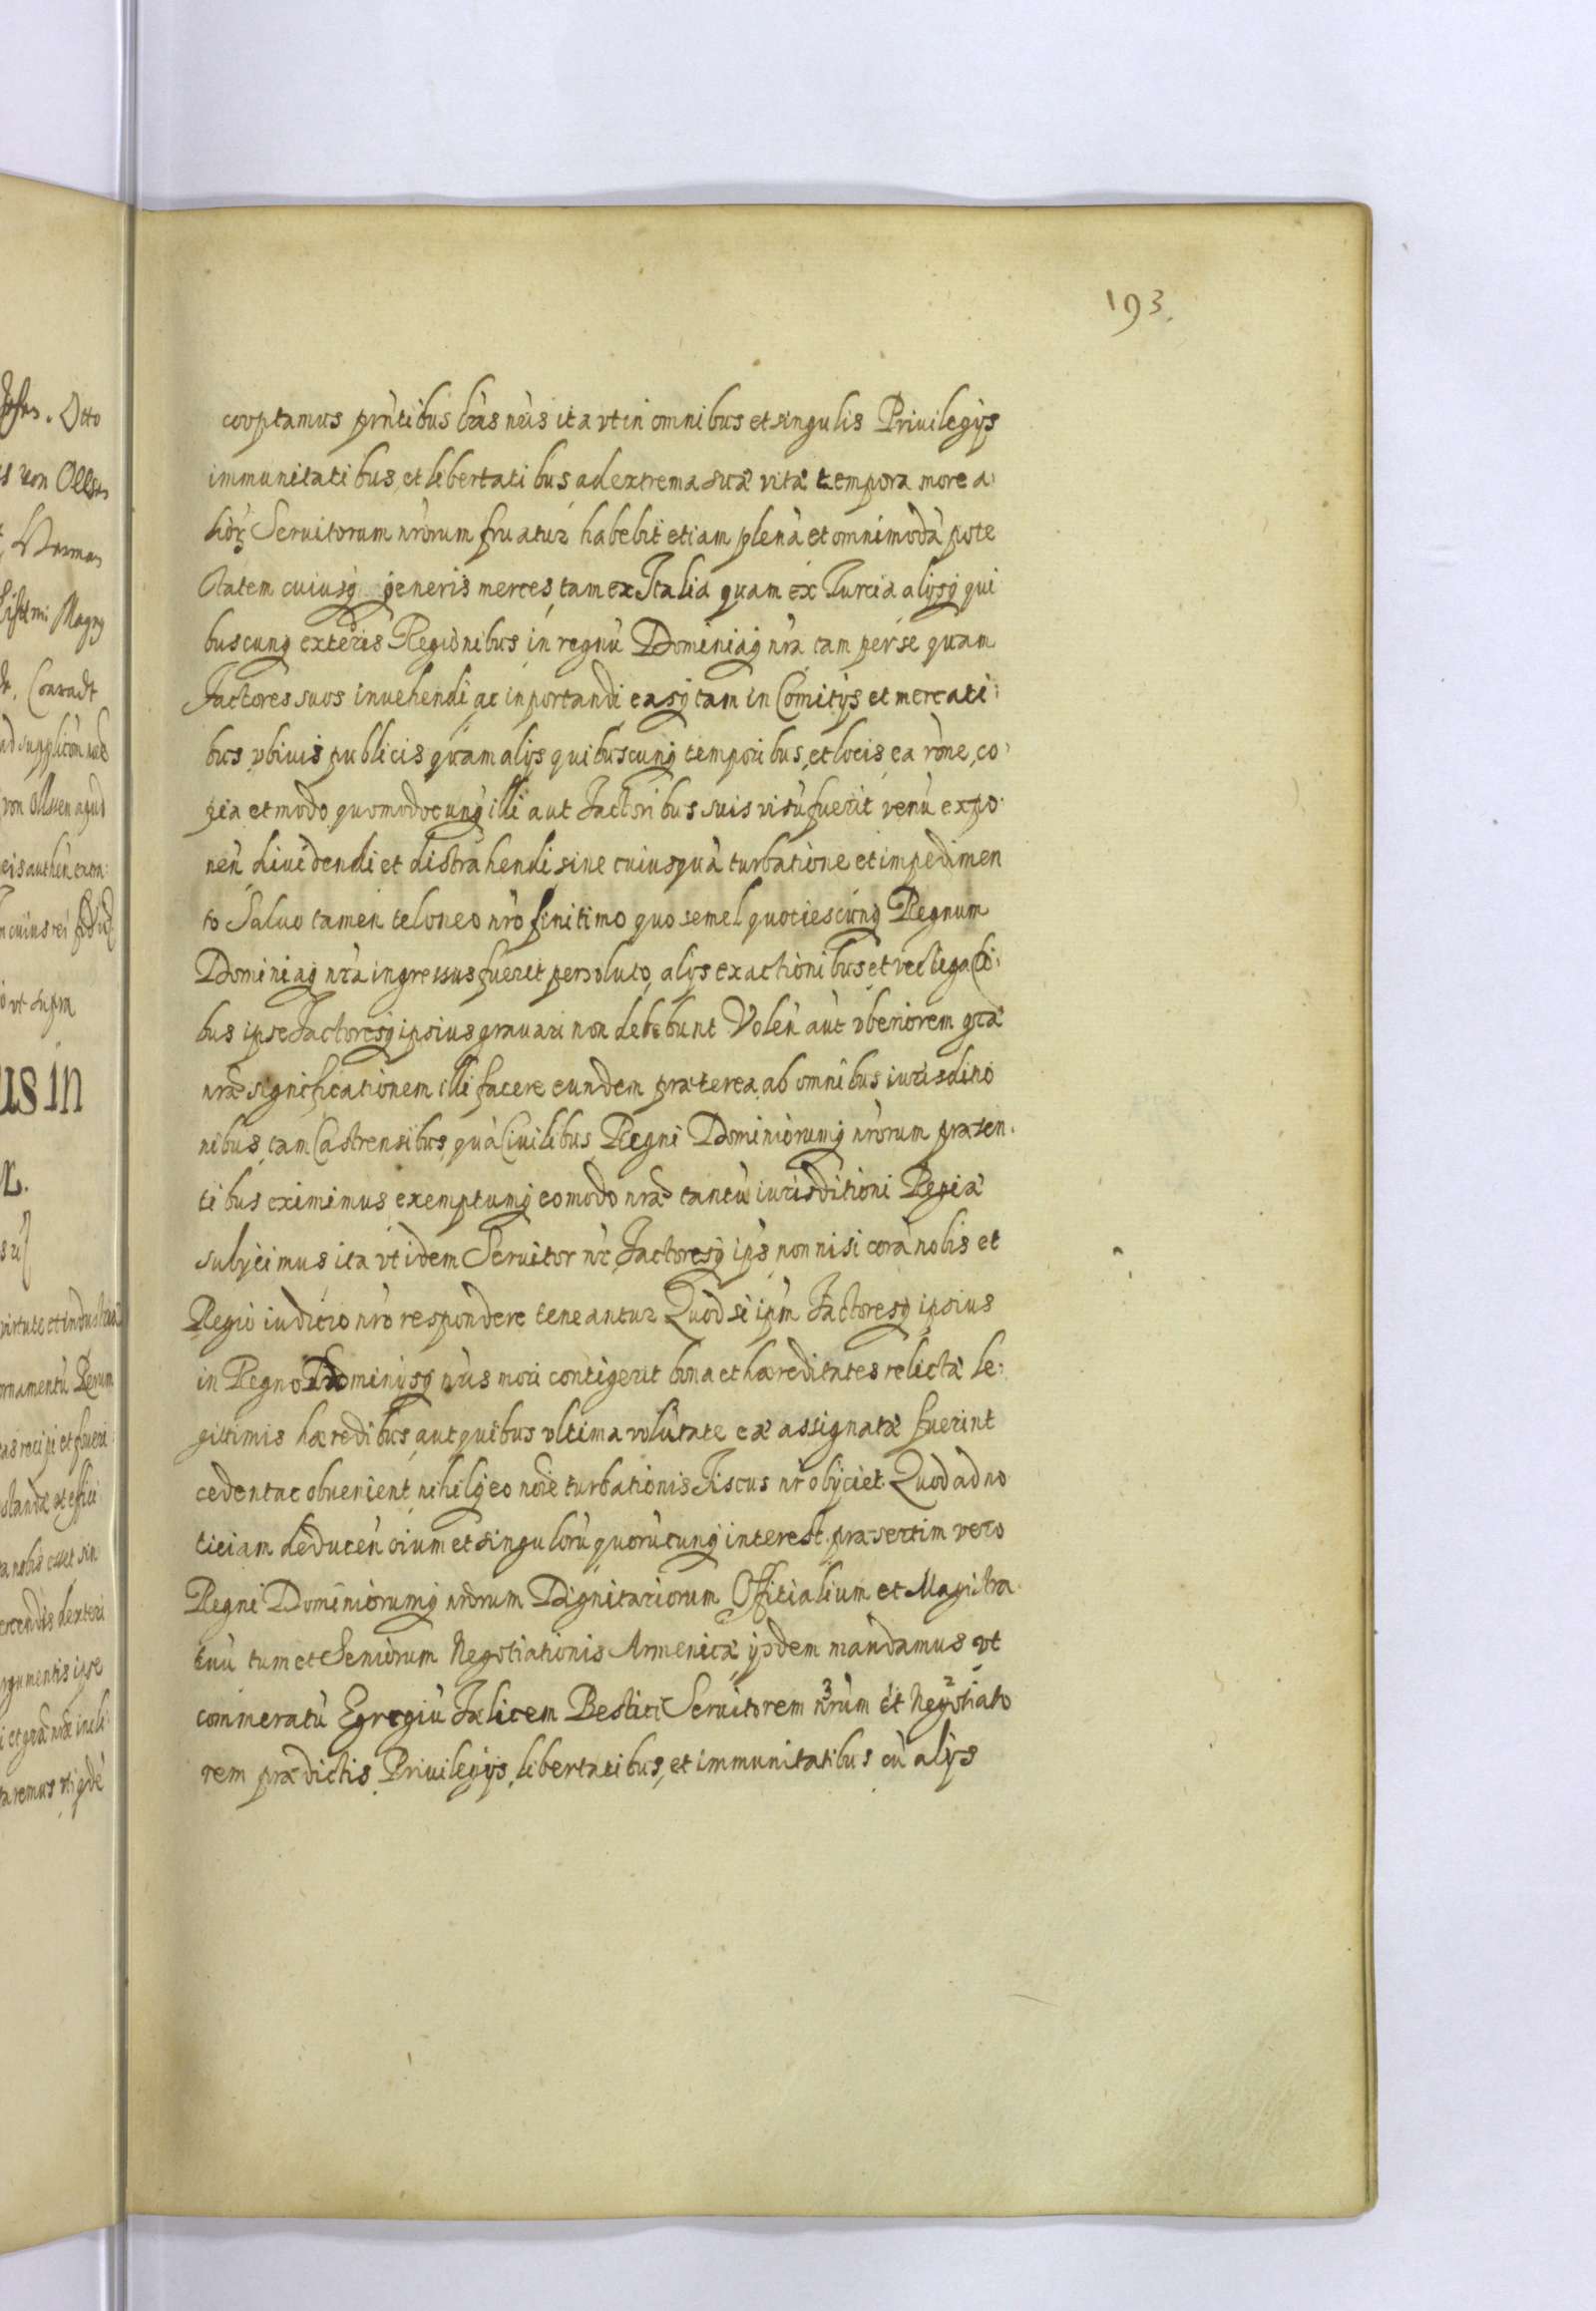 193.
cooptamus prńtibus lrãs nr̃is ita vt in omnibus et singulis Priuilegijs
immunitatibus, et libertatibus ad extrema suæ vitæ tempora more a:
liorꝝ Seruitorum nrõrum fruatur habebit etiam plenà et omnimodà pote
statem cuiusqꝫ generis merces, tam ex Italia quam ex Turcia alijsqꝫ qui
buscunqꝫ exteris Regionibus in regnũ Dominiaqꝫ nrã tam per se quam
Factores suos inuehendi ac inportandi easqꝫ tam in Comitijs et mercati:
bus vbiuis publicis quam alijs quibuscunqꝫ temporibus, et locis, ea rõne, co:
pia et modo quomodocunqꝫ illi aut Factoribus suis visũ fuerit venũ expo
neñ diuidendi et distrahendi sine cuiusquà turbatione et impedimen
to Saluo tamen teloneo nrõ finitimo quo semel quotiescunqꝫ Regnum
Dominiaqꝫ nrã ingressus fuerit persoluto, alijs exactionibus et vectigali:
bus ipse Factoresqꝫ ipsius grauari non debebunt Voleñ aũt vberiorem grãæ
nrãæ significationem illi facere eundem præterea ab omnibus iurisdictio
nibus, tam Castrensibus, quà Ciuilibus, Regni Dominiorumqꝫ nrõrum præsen:
tibus eximimus exemptumqꝫ eo modo nrãæ tantũ iurisditioni Regiæ
subijcimus ita vt idem Seruitor nr̃ Factoresqꝫ ips̃ non nisi corà nobis et
Regio iudicio nrõ respondere teneantur Quod si ipm̃ Factoresqꝫ ipsius
in Regno Dominijsqꝫ nr̃is mori contigerit bona et hæreditates relictæ le:
gittimis hæredibus aut quibus vltima volũtate eæ assignatæ fuerint
cedent ac obuenient nihilqꝫ eo nõie turbationis Fiscus nr̃ obijciet. Quod ad no
ticiam deduceñ oĩum et singulorũ quorũcunqꝫ interest. præsertim vero
Regni Dominiorumqꝫ nrõrum Dignitariorum Officialium et Magistra
tuũ tum et Seniorum Negotiationis Armenicæ ijsdem mandamus vt
commeratũ Egregiũ Fælicem Bestici Seruitorem 3 nrũm et 2 Negotiato
rem prædictis Priuilegijs, libertatibus, et immunitatibus cũ alijs
Otto
von
Conradt
vt supra
us in